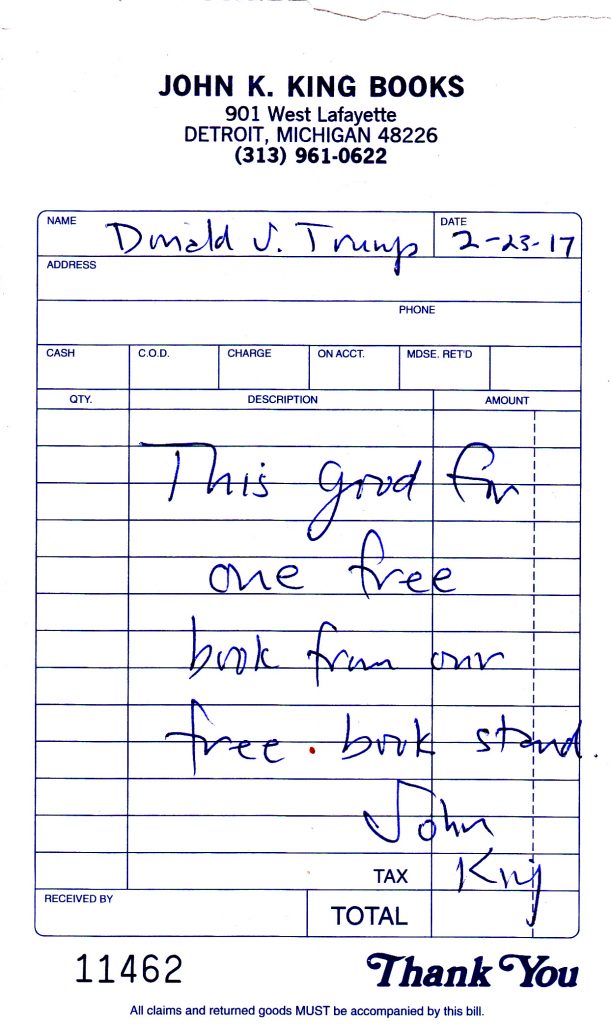 JOHN K. KING BOOKS
901 West Lafayette
DETROIT, MICHIGAN 48226
(313) 961-0622
NAME Donald J. Trump DATE 2-23-17
ADDRESS
PHONE
CASH C.O.D. CHARGE ON ACCT. MDSE. RET'D
QTY. DESCRIPTION AMOUNT
This good for
one free
book from our
free book stand.
John
TAX King
RECEIVED BY TOTAL
11462 Thank You
All claims and returned goods MUST be accompanied by this bill.